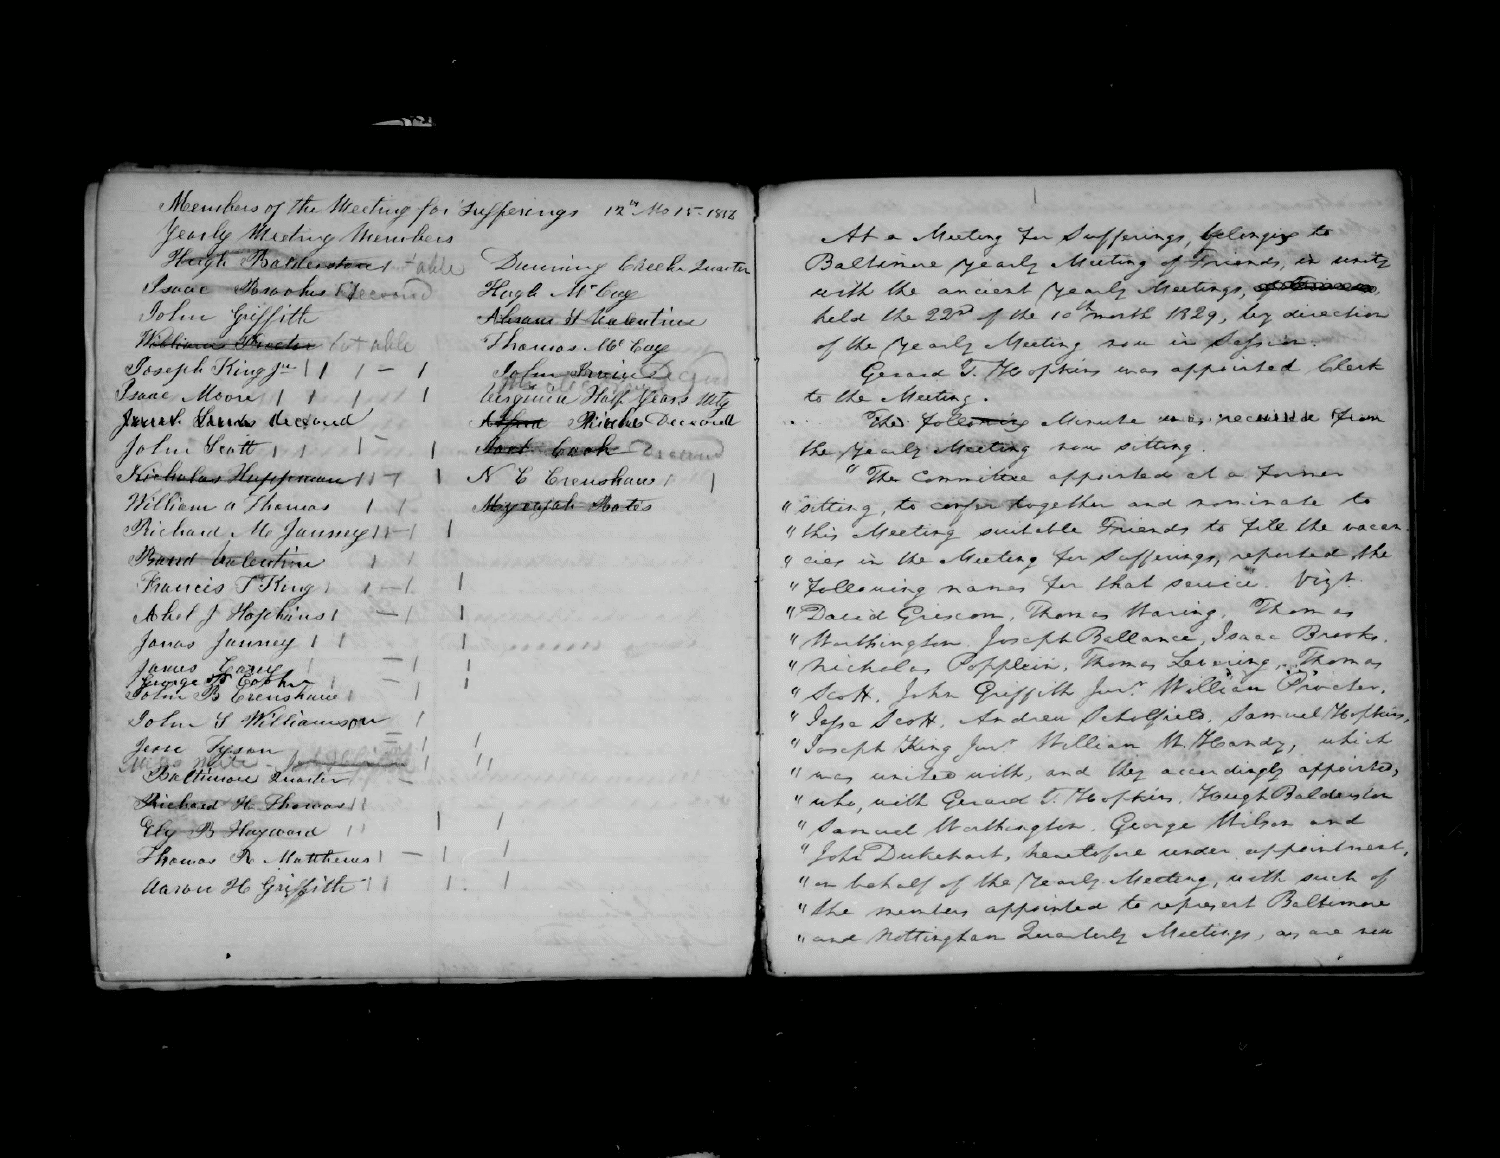 Members of the Meeting for Sufferings 12th Mo 15-
Yearly Meeting Members
Hugh Balderston able
Isaac Brookes deceased
John Griffith
William Procter not able
Joseph King Jr
Isaac Moore
deceased
John Scott
Nicholas Huppman
William A Thomas
Richard M Janney
Valentine
Francis T King
Abel J Hopkins
Jonas Janney
James Carey
George
John B Crenshaw
John S Williamson
Jesse Tyson
Baltimore Quarter
Richard H Thomas
Ely B Hayward
Thomas R Matthews
Aaron H Griffith
Dunning Creek Quarter
Hugh McCoy
Valentine
Thomas McCoy
John
Virginia Half Years Mtg
Ricks Deceased
Cook Deceased
N C Crenshaw
Micajah Bates
At a Meeting for Sufferings, belonging to
Baltimore Yearly Meeting of Friends, in unity
with the ancient Yearly Meetings,
held the 22d of the 10th month 1829, by direction
of the Yearly Meeting now in Session.
Gerard T. Hopkins was appointed Clerk
to the Meeting.
The following Minute was received from
the Yearly Meeting now sitting.
"The Committee appointed at a former
"sitting, to confer together and nominate to
"this Meeting suitable Friends to fill the vacan-
"cies in the Meeting for Sufferings, reported the
"following names for that service. Vizt.
"David Griscom, Thomas Waring, Thomas
"Worthington, Joseph Ballance, Isaac Brooks,
"Nicholas Popplein, Thomas Levering, Thomas
"Scott, John Griffith Junr. William Procter,
"Jesse Scott, Andrew Scholfield, Samuel Hopkins,
"Joseph King Junr. William W. Handy, which
"was united with, and they accordingly appointed,
"who, with Gerard T. Hopkins, Hugh Balderston
"Samuel Worthington, George Wilson and
"John Dukehart, heretofore under appointment,
"on behalf of the Yearly Meeting, with such of
"the members appointed to represent Baltimore
"and Nottingham Quarterly Meetings, as are now